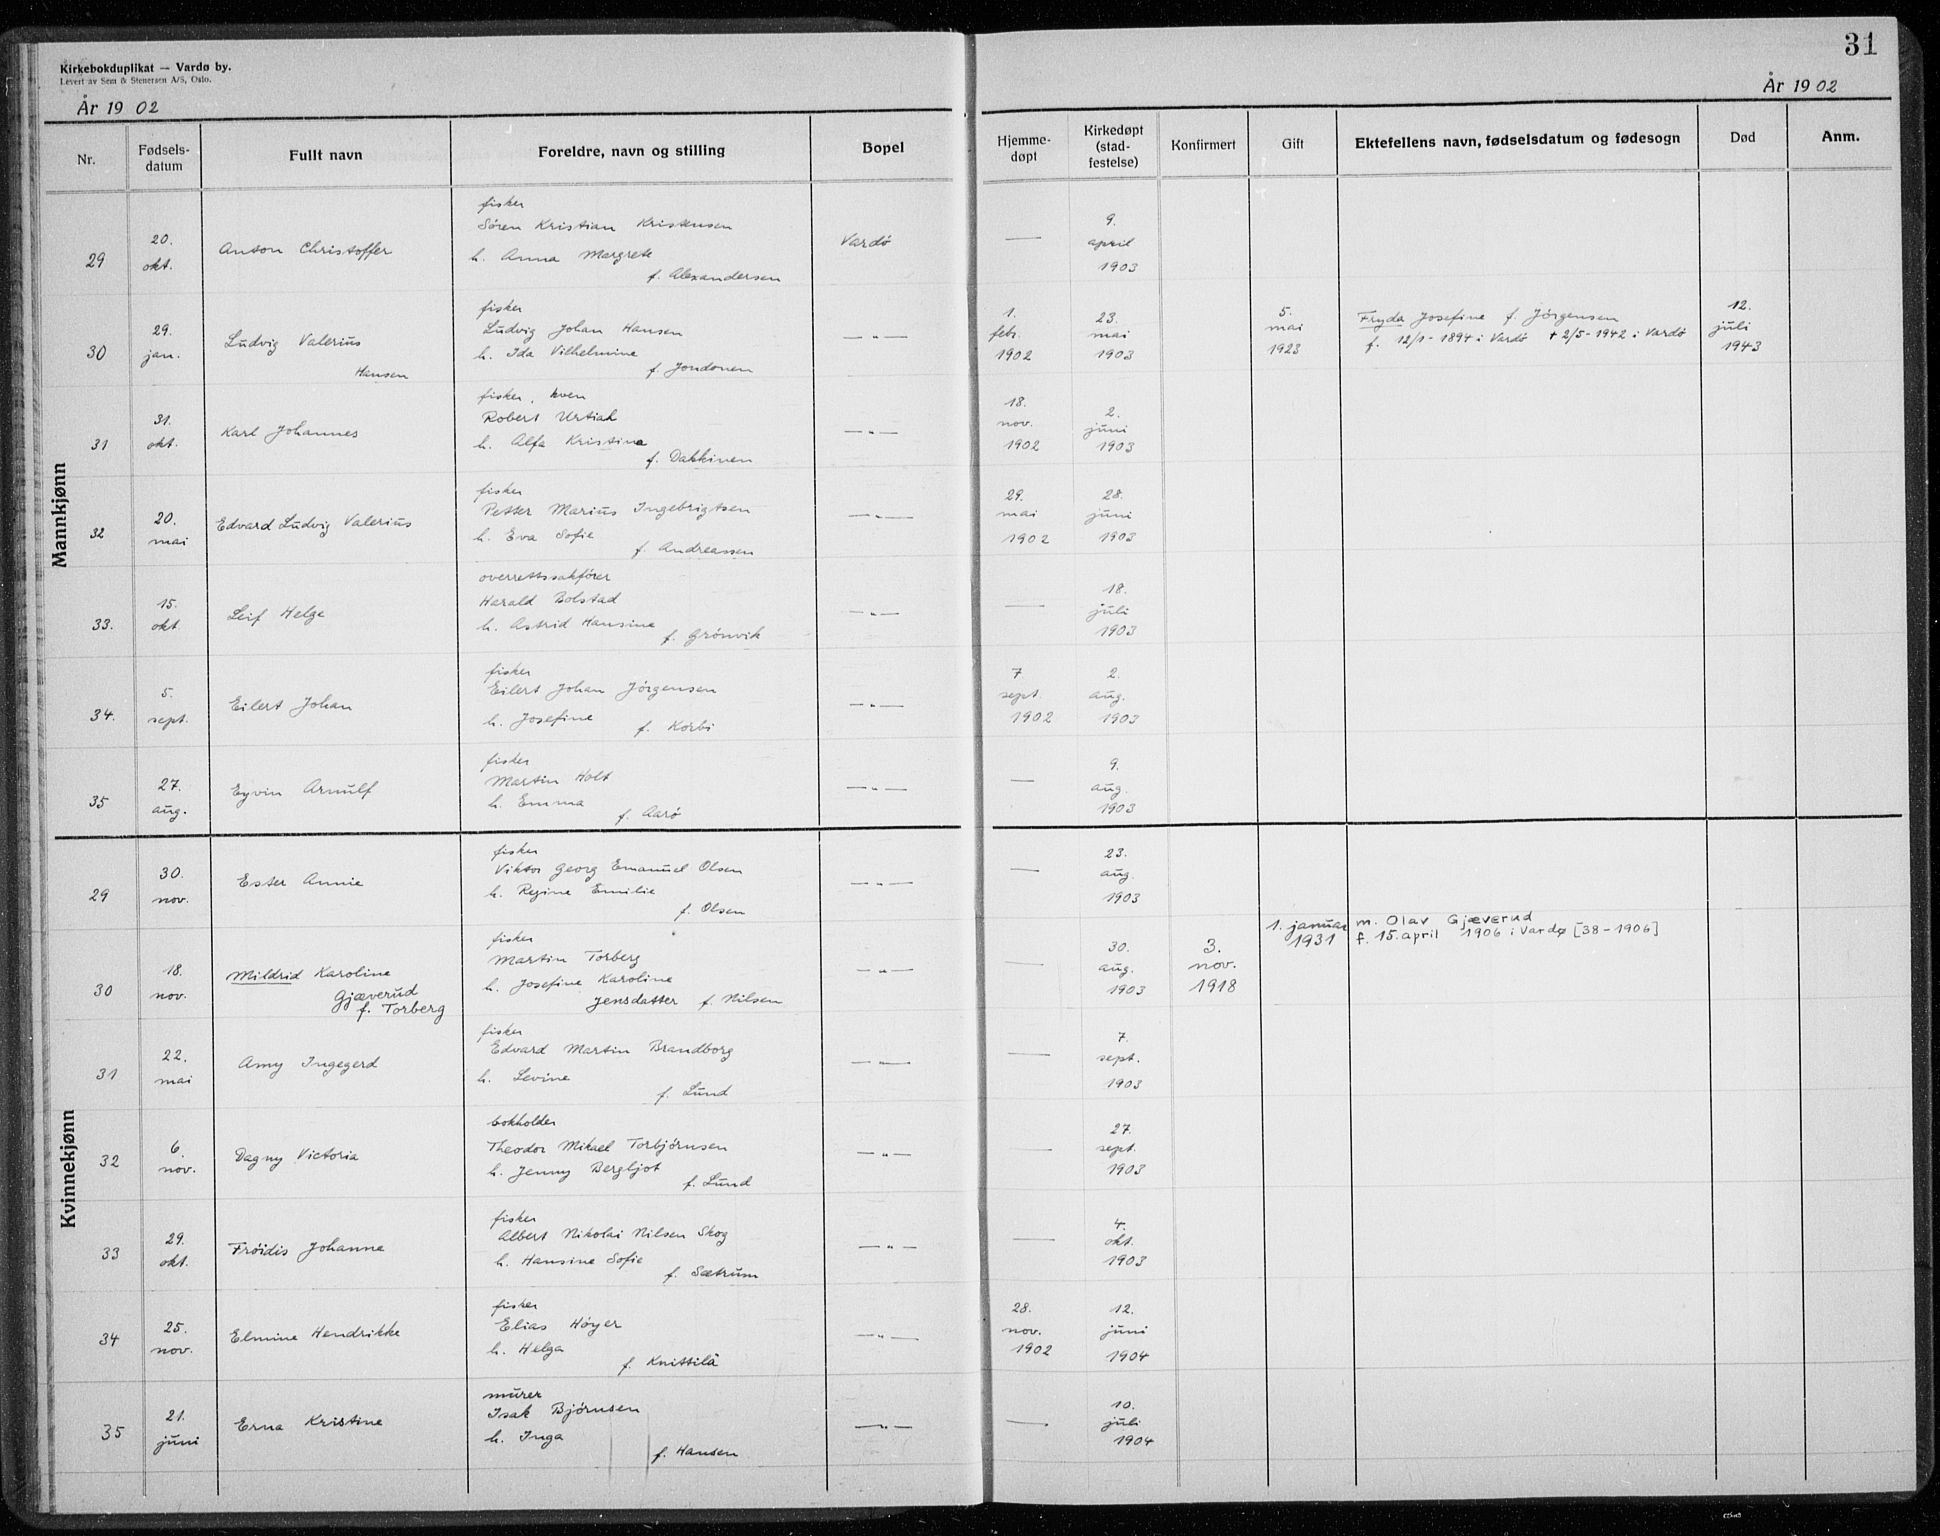 31
Kirkebokduplikat — Vardø by.
Levert av Sem & Stenersen A/S, Oslo.
År 1902
År 1902
Nr.
Fødsels-
datum
Fullt navn
Foreldre, navn og stilling
Bopel
Hjemme-
døpt
Kirkedøpt
(stad-
festelse)
Konfirmert
Gift
Ektefellens navn, fødselsdatum og fødesogn
Død
Anm.
Mannkjønn
29
20.
okt.
Anton Christoffer
fisker
Sören Kristian Kristensen
h. Anna Margrete
f. Alexandersen
Vardö
—
9.
april
1903
30
29.
jan.
Ludvig Valerius
Hansen
fisker
Ludvig Johan Hansen
h. Ida Vilhelmine
f. Jondonen
— " —
1.
febr.
1902
23.
mai
1903
5.
mai
1923
Fryda Josefine f. Jörgensen
f. 12/1 - 1894 i Vardö + 2/5-1942 i Vardö
12.
juli
1943
31
31.
okt.
Karl Johannes
fisker, kven
Robert Urtiah
h. Alfa Kristine
f. Dakkinen
— " —
18.
nov.
1902
2.
juni
1903
32
20.
mai
Edvard Ludvig Valerius
fisker
Petter Marius Ingebrigtsen
h. Eva Sofie
f. Andreassen
— " —
29.
mai
1902
28.
juni
1903
33.
15.
okt.
Leif Helge
overrettssakfører
Harald Bolstad
h. Astrid Hansine
f. Grönvik
— " —
—
18.
juli
1903
34.
5.
sept.
Eilert Johan
fisker
Eilert Johan Jörgensen
h. Josefine
f. Körbi
— " —
7
sept.
1902
2.
aug.
1903
35
27.
aug.
Eyvin Arnulf
fisker
Martin Holt
h. Emma
f. Aarö
— " —
—
9.
aug.
1903
Kvinnekjønn
29
30.
nov.
Ester Annie
fisker
Viktor Georg Emanuel Olsen
h. Regine Emilie
f. Olsen
— " —
—
23.
aug.
1903
30
18.
nov.
Mildrid Karoline
Gjæverud
f. Torberg
fisker
Martin Torberg
h. Josefine Karoline
Jensdatter f. Nilsen
— " —
—
30.
aug.
1903
3.
nov.
1918
1. januar
1931
m. Olav Gjæverud
f. 15. april 1906 i Vardø [38-1906]
31
22.
mai
Amy Ingegerd
fisker
Edvard Martin Brandborg
h. Levine
f. Lund
— " —
—
7.
sept.
1903
32
6.
nov.
Dagny Victoria
bokholder
Theodor Mikael Torbjörnsen
h. Jenny Bergljot
f. Lund
— " —
—
27.
sept.
1903
33
29.
okt.
Fröidis Johanne
fisker
Albert Nikolai Nilsen Skog
h. Hansine Sofie
f. Sætrum
— " —
—
4.
okt.
1903
34
25.
nov.
Elmine Hendrikke
fisker
Elias Höyer
h. Helga
f. Knittilä
— " —
28.
nov.
1902
12.
juni
1904
35
21.
juni
Erna Kristine
murer
Isak Björnsen
h. Inga
f. Hansen
— " —
—
10.
juli
1904